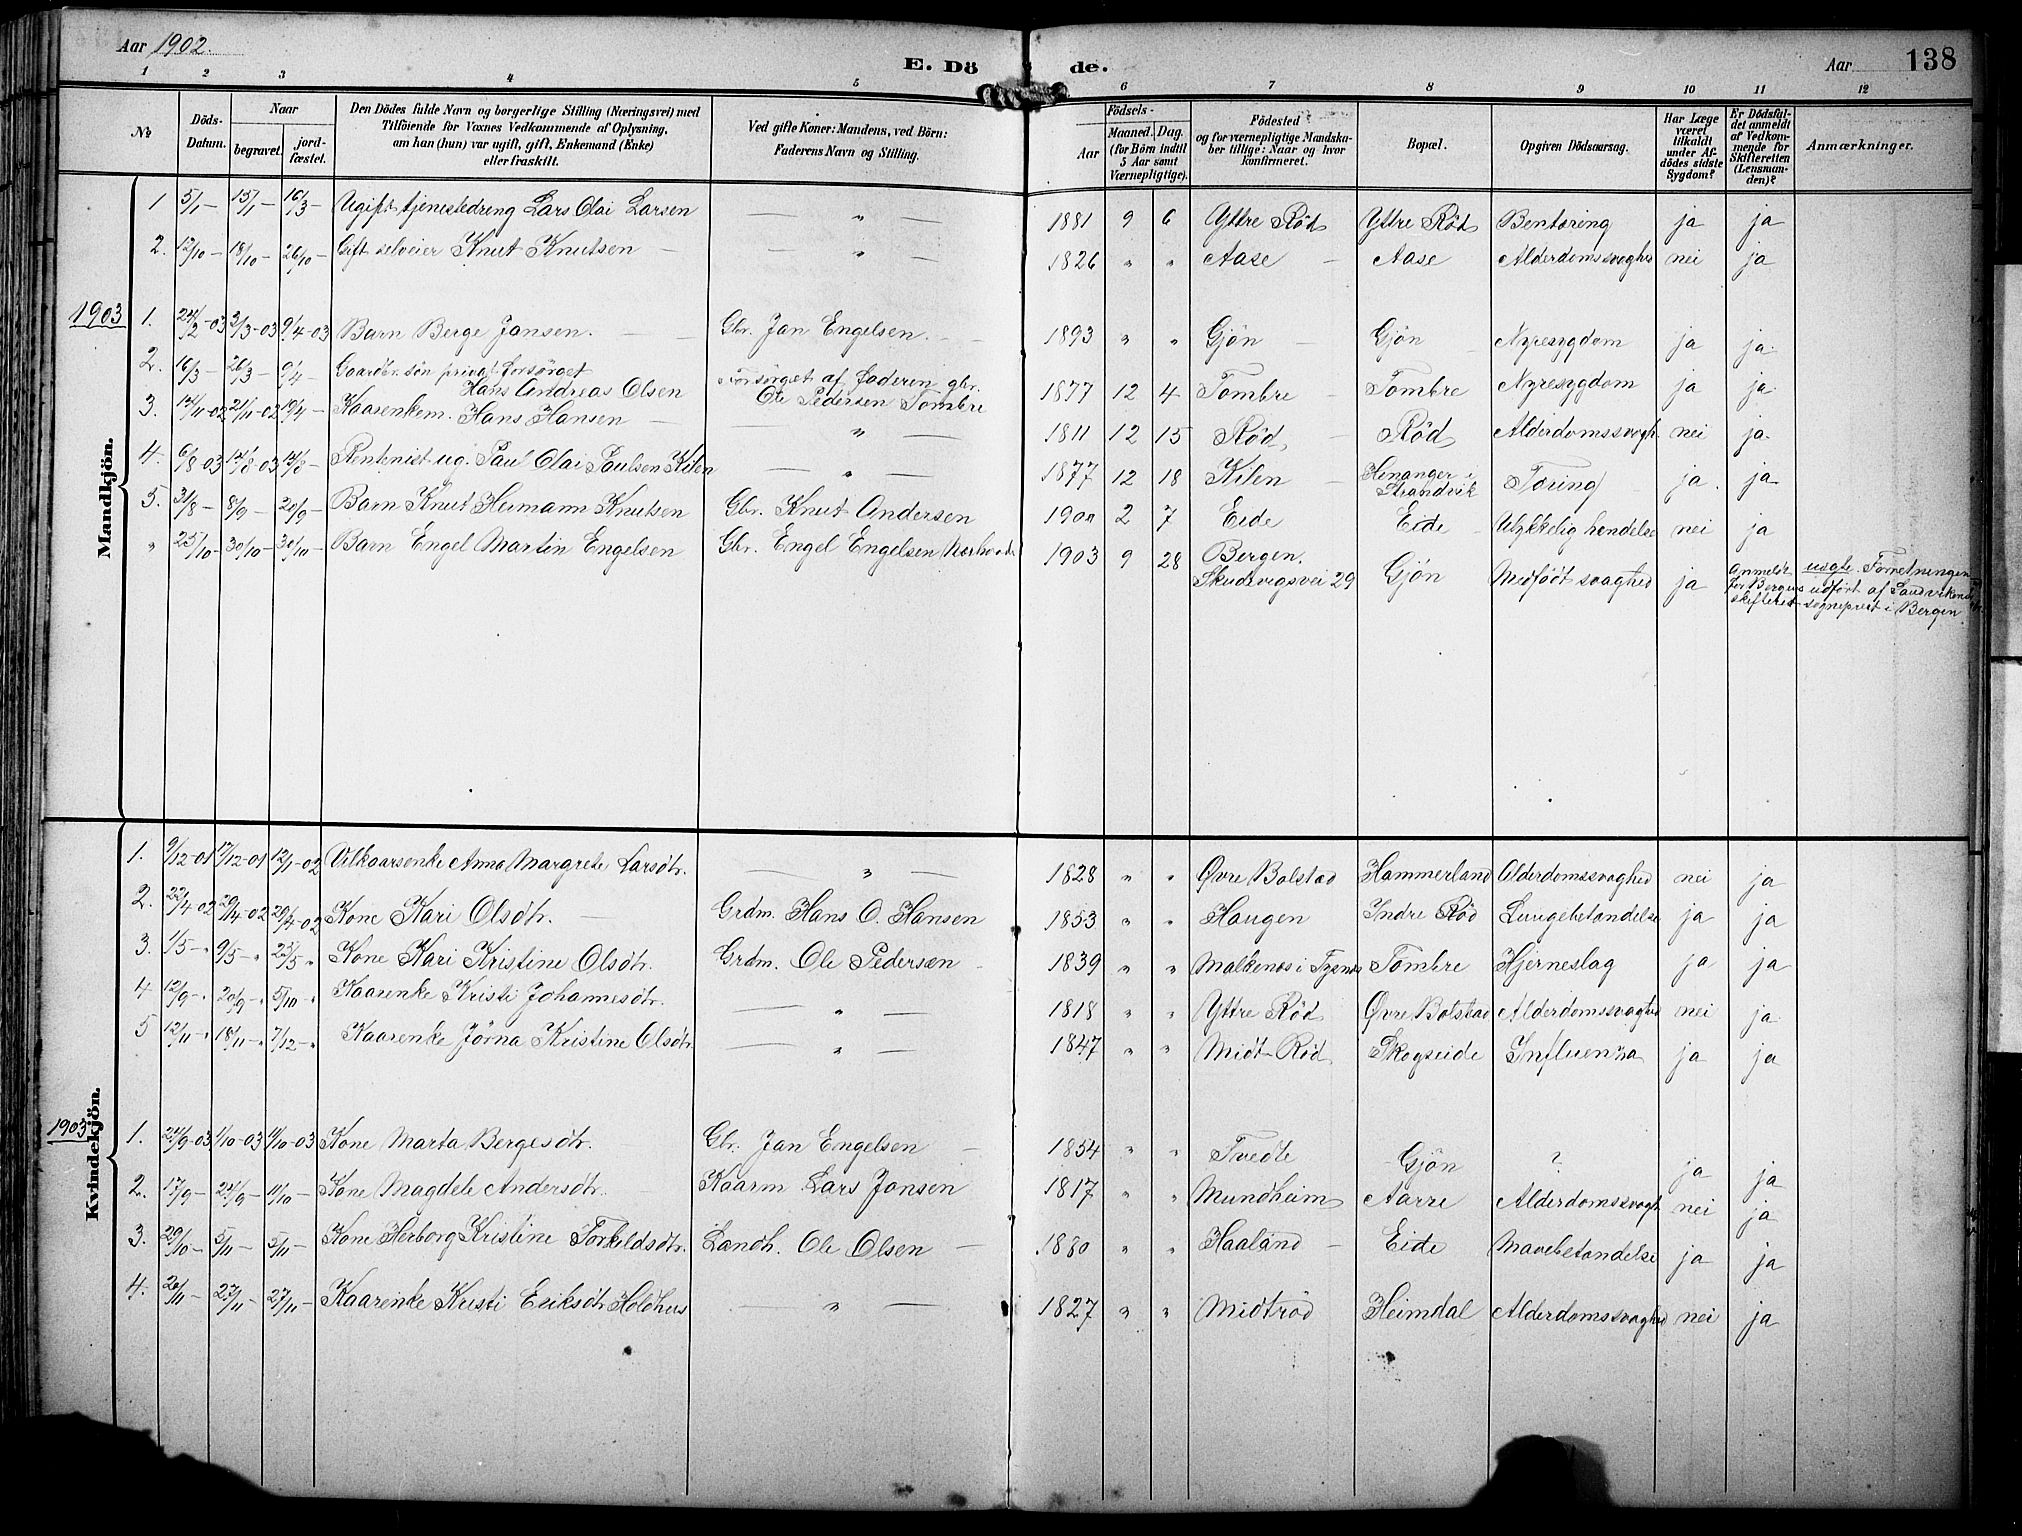 Aar 1902.
E. Dö de.
Aar 138
1 2 3 4 5 6 7 8 9 10 11 12
No
Döds-Datum.
Naar
begravet.
jord-fæstet.
Den Dödes fulde Navn og borgerlige Stilling (Næringsvei) med
Tilföiende for Voxnes Vedkommende af Oplysning,
om han (hun) var ugift, gift, Enkemand (Enke)
eller fraskilt.
Ved gifte Koner: Mandens, ved Börn:
Faderens Navn og Stilling.
Födsels-
Aar
Maaned. Dag.
(for Börn indtil
5 Aar samt
Værnepligtige).
Födested
og for værnepligtige Mandska-
ber tillige: Naar og hvor
konfirmeret.
Bopæl.
Opgiven Dödsaarsag.
Har Læge
været
tilkaldt
under Af-
dödes sidste
Sygdom?
Er Dödsfal-
det anmeldt
af Vedkom-
mende for
Skifteretten
(Lensman-
den)?
Anmærkninger.
Mandkjön.
1 5/1 - 15/1 - 16/3 - Ugift tjenestedreng Lars Olai Larsen — " — 1881 9 6 Yttre Röd Yttre Röd Bentæring ja ja
2. 12/10 - 18/10 - 26/10 - Gift selveier Knut Knutsen — " — 1826 " " Aase Aase Alderdomssvaghed nei ja
1903
1. 24/2-03 3/3-03 9/4-03 Barn Berge Jansen. Gbr. Jan Engelsen. 1893 " " Gjön Gjön Nyresygdom ja ja
2. 16/3 - 26/3 - 9/4 - Gaardbr. sön privat forsörget
Hans Andreas Olsen Forsörget af faderen gbr.
Ole Pedersen Tombre 1877 12 4 Tombre Tombre Nyresygdom ja ja
3. 14/11-02 21/11-02 19/4 - Kaarenkem. Hans Hansen — " — 1811 12 15 Röd, Röd Alderdomssvagh. nei ja
4. 6/8-03 12/8-03 12/8 - Rentenist ug. Paul Olai Paulsen Kilen — " — 1877 12 18 Kilen Henanger i
Strandvik Tæring ja ja
5. 31/8 - 8/9 - 20/9 - Barn Knut Hermann Knutsen Gbr. Knut Andersen 1901 2 7 Eide Eide Ulykkelig hendelse nei ja
" 25/10 - 30/10 - 30/10 - Barn Engel Martin Engelsen Gbr. Engel Engelsen 1903 9 28 Bergen.
Skudevigsvei 29 Gjön Medfödt svaghed ja Anmeldt
for Bergens
skifteret ucgte. Forretningen
udfört af Sandvikens
sogneprest i Bergen.
Kvindekjön.
1. 9/12-01 17/12-01 12/1-02 Vilkaarsenke Anna Margrete Larsdtr. — " — 1828 " " Övre Bolstad Hammerland Alderdomssvaghed nei ja
2. 22/4-02 29/4-02 29/4-02 Kone Kari Olsdtr. Grdm. Hans O. Hansen 1853 " " Haugen Indre Röd Lungebetændelse ja ja
3. 1/5 - " 9/5 - " 25/5 " Kone Kari Kristine Olsdtr. Grdm. Ole Pedersen 1839 " " Malkenes i Tysnes Tombre Hjerneslag ja ja
4 12/9 - " 20/9 - " 5/10 - " Kaarenke Kristi Johannesdtr. — " — 1818 " " Yttre Röd Övre Bolstad Alderdomssvaghed nei ja
5 12/11 - " 18/11 - " 7/12 - " Kaarenke Jörna Kristine Olsdtr. — " — 1847 " " Midt-Röd Skogseide Influenza ja ja
1903
1. 24/9-03 1/10-03 11/10-03 Kone Marta Bergesdtr. Gbr. Jan Engelsen 1854 " " Tvedte Gjön ? ja ja
2. 17/9 - 24/9 - 11/10 - Kone Magdele Andersdtr. Kaarm Lars Jansen 1817 " " Mundheim Aarre Alderdomssvagh. nei ja
3. 29/10 - 5/11 - 5/11 - Kone Herborg Kristine Torkildsdtr. Landh. Ole Olsen 1880 " " Haaland Eide Mavebetændelse ja ja
4. 20/11 - 27/11 - 27/11 - Kaarenke Kristi Eriksdtr. Holdhus — " — 1827 " " Midtröd Heimdal Alderdomssvaghed nei ja